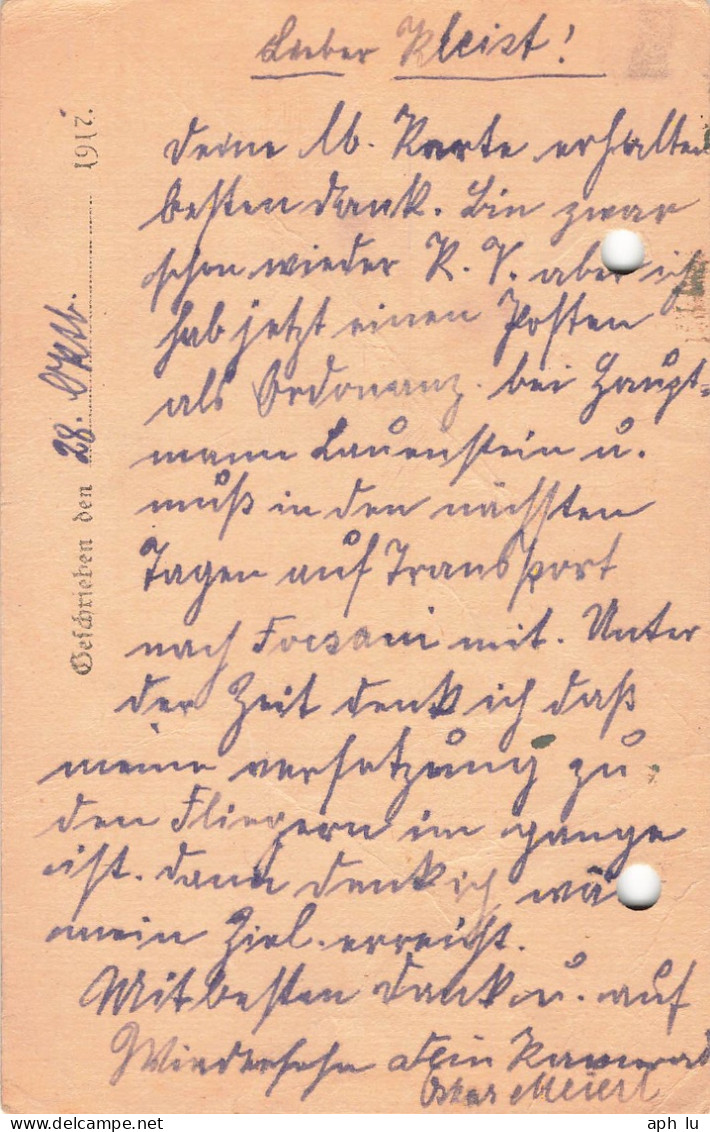 Geschrieben den 28. Oktb. 1917.
Lieber Kleist!
deine lb. Karte erhalten
besten dank. Bin zwar
schon wieder K. V. aber ich
hab jetzt einen Posten
als Ordonanz. bei Haupt=
mann Lauenstein u.
muß in den nächsten
Tagen auf Transport
nach Focsani mit. Unter
der Zeit denk ich daß
meine versetzung zu
den Fliegern im gange
ist. dann denk ich wä
mein Ziel erreicht.
Mit besten dank u. auf
Wiedersehn dein Kamerad
Oskar Meierl
aph lu